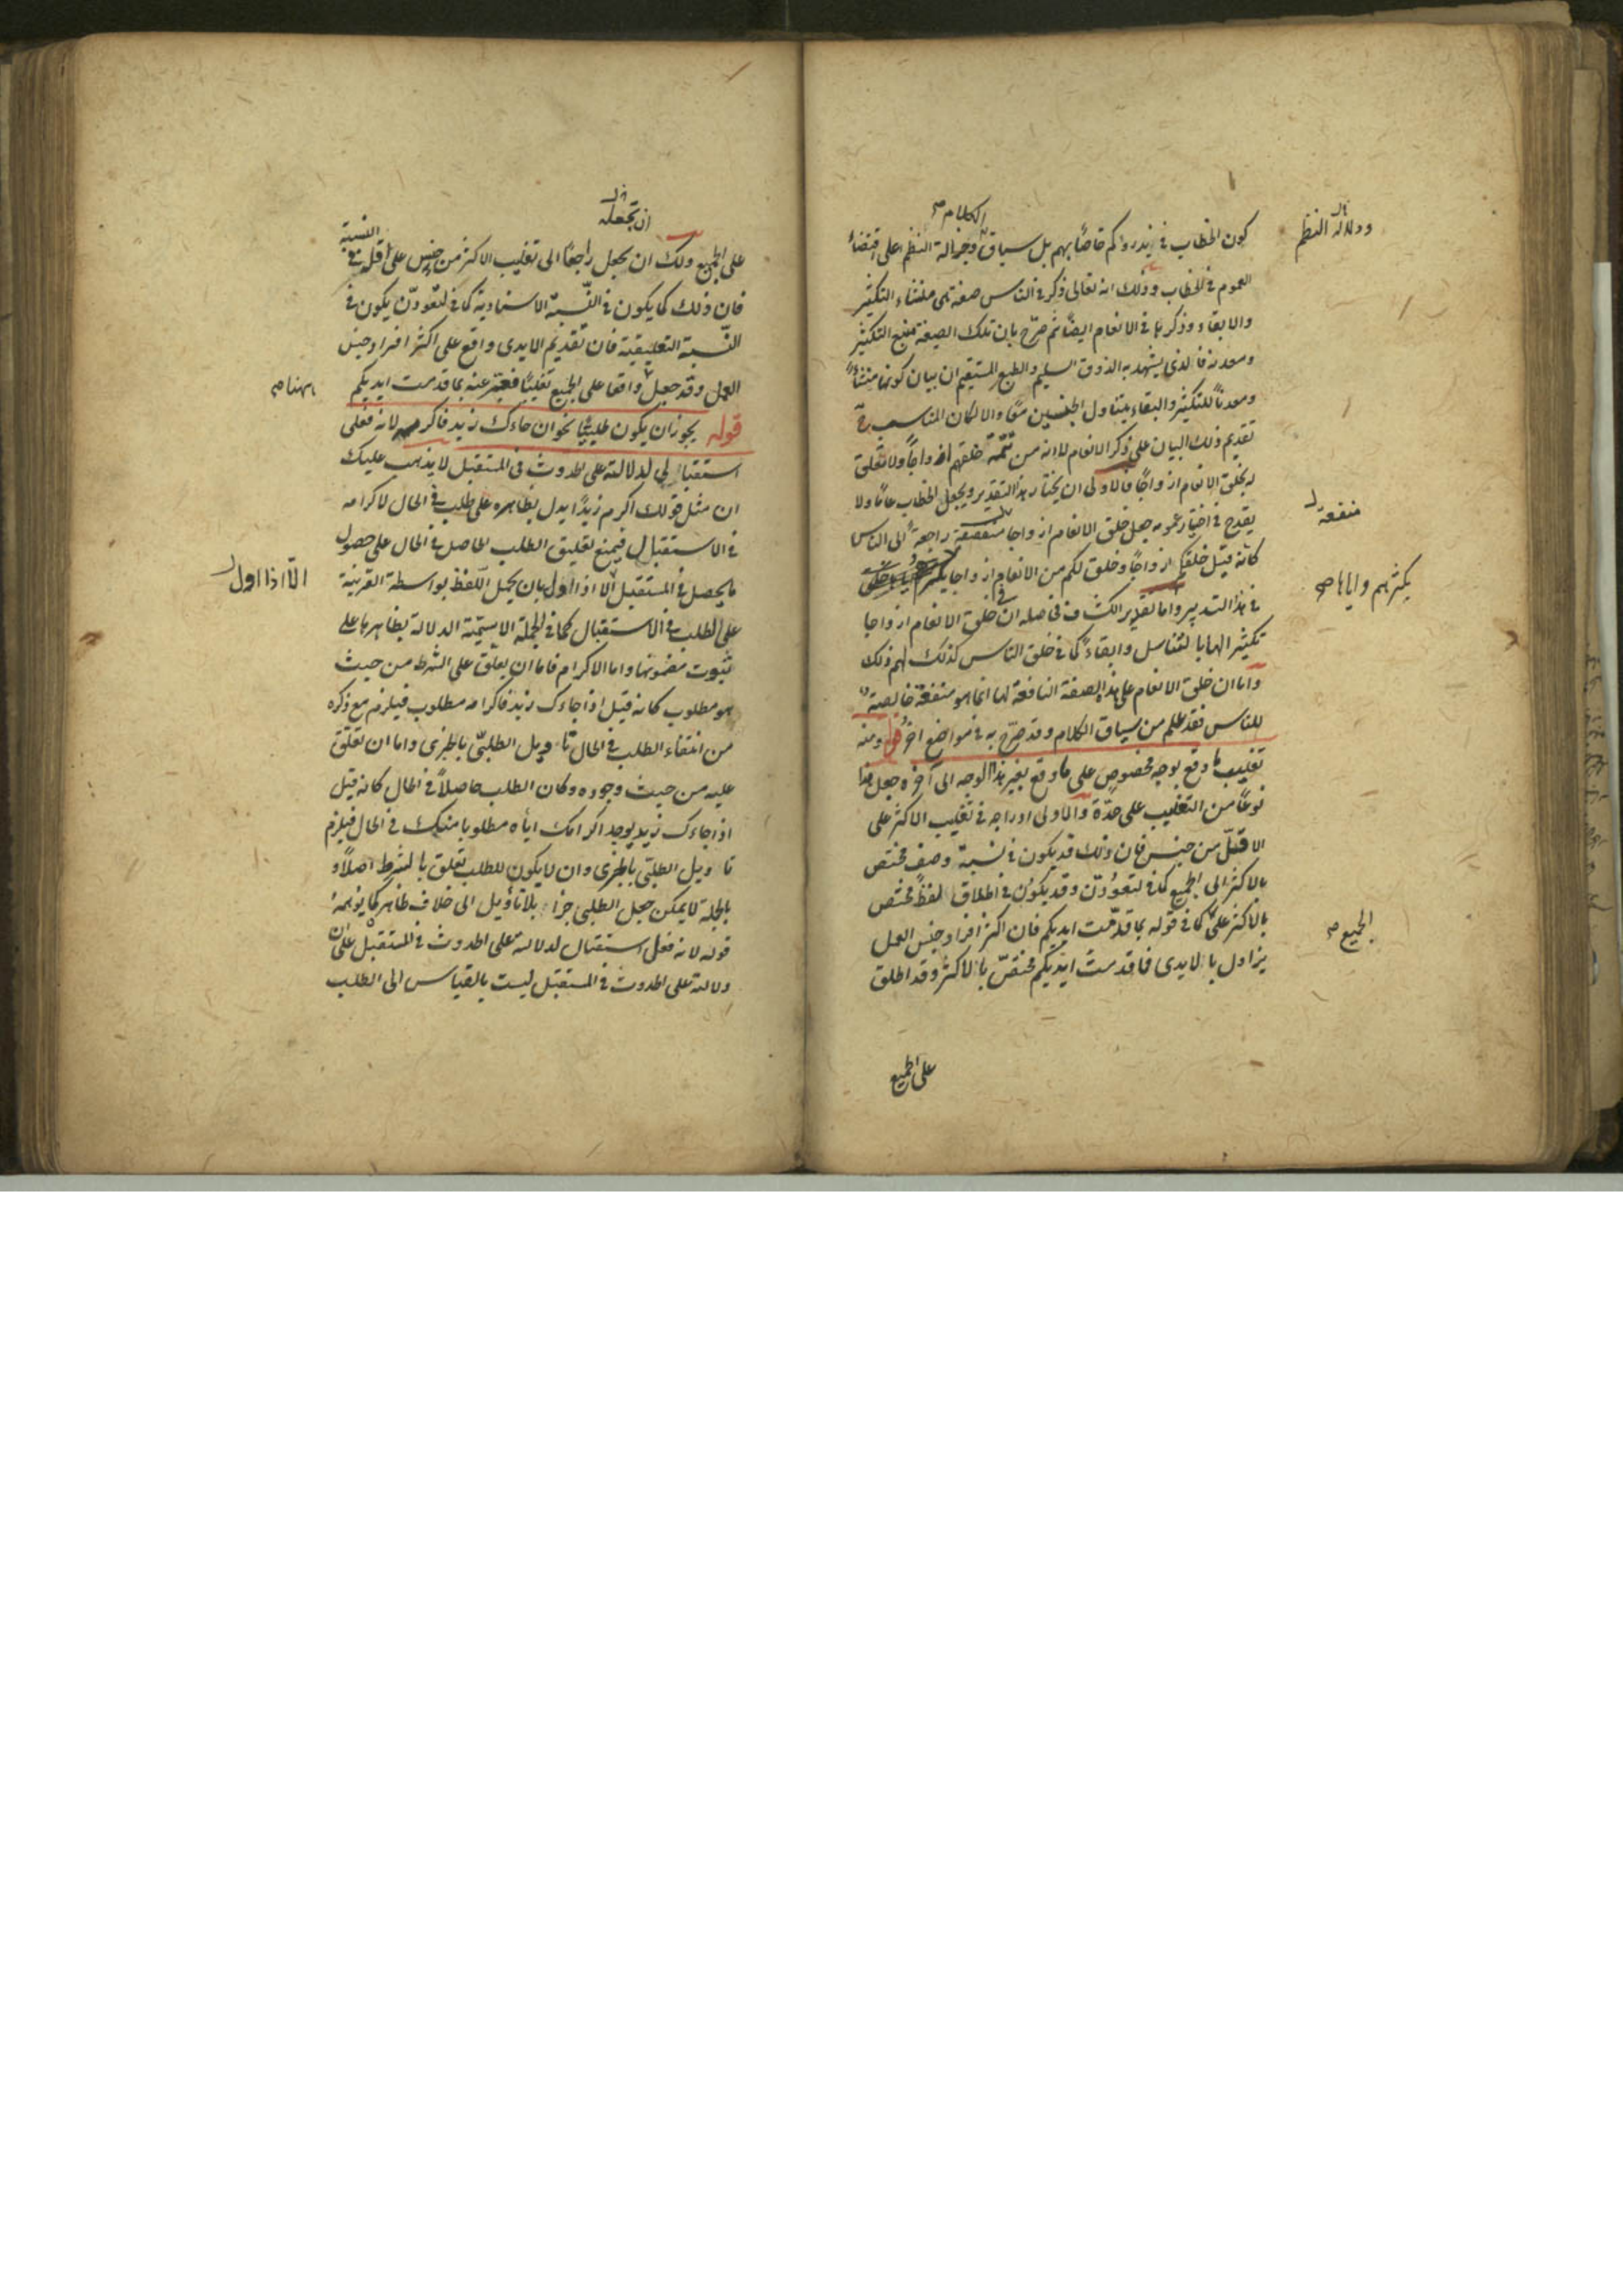 الكلام صح
ودلالة النظم
كون الخطاب في يذرؤكم خاصا بهم بل سياق وجزالة النظم على اقتضاء
العموم في الخطاب وذلك انه تعالى ذكر في الناس صفة هي منشاء التكثير
والابقاء وذكرها في الانعام ايضا ثم صرح بان تلك الصفة منبع التكثير
ومعدنه فالذي يشهد به الذوق السليم والطبع المستقيم ان بيان كونها منشأ
ومعدنا للتكثير والبقاء يتناول الجنسين معا والا لكان المناسب
تقديم ذلك البيان على ذكر الانعام لانه من تتمة خلقهم ازواجا ولا تعلق
له بخلق الانعام ازواجا فالاولى ان يختار هذا التقدير ويجعل الخطاب عاما ولا
منفعة
يقدح في اختيار عمومه جعل خلق الانعام ازواجا منفعة راجعة الى الناس
كانه قيل خلقكم ازواجا وخلق لكم من الانعام ازواجا
يكثرهم واياها صح
في هذا التدبير واما تقدير الكشاف فحاصله ان في خلق الانعام ازواجا
تكثير الها بالتناسل وابقاء كما في خلق الناس كذلك لهم ذلك
واما ان خلق الانعام على هذه الصفة النافعة لها انما هو منفعة خالصة
للناس فقد علم من سياق الكلام وقد صرح به في مواضع اخر قوله ومنه
تغليب ما وقع بوجه مخصوص على ما وقع بغير هذا الوجه الى آخره جعل هذا
نوعا من التغليب على حدة والاولى ادراجه في تغليب الاكثر على
الاقل من جنس فان ذلك قد يكون في نسبة وصف مختص
بالاكثر الى الجميع كما في لتعودن وقد يكون في اطلاق لفظ مختص
بالاكثر على كما في قوله بما قدمت ايديكم فان اكثر افراد جنس العمل
الجميع صح
يزاول بالايدي فما قدمت ايديكم مختص بالاكثر وقد اطلق
على الجميع
ان تجعله
النسبة
على الجميع ولك ان يجعل راجعا الى تغليب الاكثر من جنس على اقله في
فان ذلك كما يكون في النسبة الاسنادية كما في لتعودن يكون في
النسبة التعليقية فان تقديم الايدي واقع على اكثر افراد جنس
العمل وقد جعل واقعا على الجميع تغليبا فعبر عنه بما قدمت ايديكم
ههنا صح
قوله يجوز ان يكون طلبيا نحو ان جاءك زيد فاكرمه لانه فعلى
استقبالي لدلالته على الحدوث في المستقبل لا يذهب عليك
ان مثل قولك اكرم زيدا يدل بظاهره على طلب في الحال لاكرامه
في الاستقبال فيمنع تعليق الطلب الحاصل في الحال على حصول
ما يحصل في المستقبل الا اذا اول بان يحمل اللفظ بواسطة القرينة
الا اذا اول
على الطلب في الاستقبال كما في الجملة الاسمية الدلالة بظاهرها على
ثبوت مضمونها واما الاكرام فاما ان يعلق على الشرط من حيث
هو مطلوب كانه قيل اذا جاءك زيد فاكرامه مطلوب فيلزم مع ذكره
من انتفاء الطلب في الحال تاويل الطلبي بالخبري واما ان تعلق
عليه من حيث وجوده وكان الطلب حاصلا في الحال كانه قيل
اذا جاءك زيد يوجد اكرامك اياه مطلوبا منك في الحال فيلزم
تاويل الطلبي بالخبري وان لا يكون للطلب تعلق بالشرط اصلا و
بالجملة لا يمكن جعل الطلبي جزاء بلا تأويل الى خلاف ظاهره كما يوهمه
قوله لانه فعل استقبال لدلالته على الحدوث في المستقبل على ان
دلالته على الحدوث في المستقبل ليست بالقياس الى الطلب